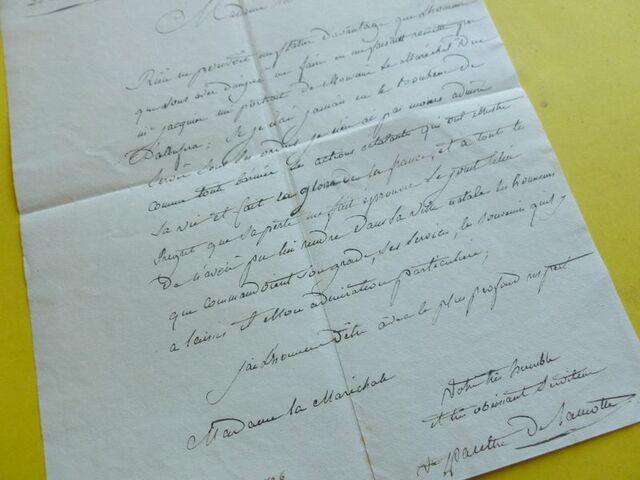 Madame la
Rien ne pouvoit me flatter davantage que l'honneur
que vous avez daigné me faire en me faisant remettre par
Mr jacquier un portrait de Monsieur Le Maréchal Duc
D'albufera; Si je n'ai jamais eu le bonheur de
Servir Sous Ses ordres je n'en ai pas moins admiré
comme toute l'armée les actions éclatantes qui ont illustré
Sa vie et fait la gloire de la france, et a tout le
Regret que Sa perte me fait éprouver Se joint celui
De n'avoir pu lui rendre dans Sa ville natale les honneurs
que commandoient Son grade, Ses Services, les Souvenirs qu'il y
a laissés et Mon admiration particulière;
j'ai L'honneur d'être avec le plus profond respect
Madame la Maréchale
Votre très humble
et très obéissant Serviteur
De Lamotte